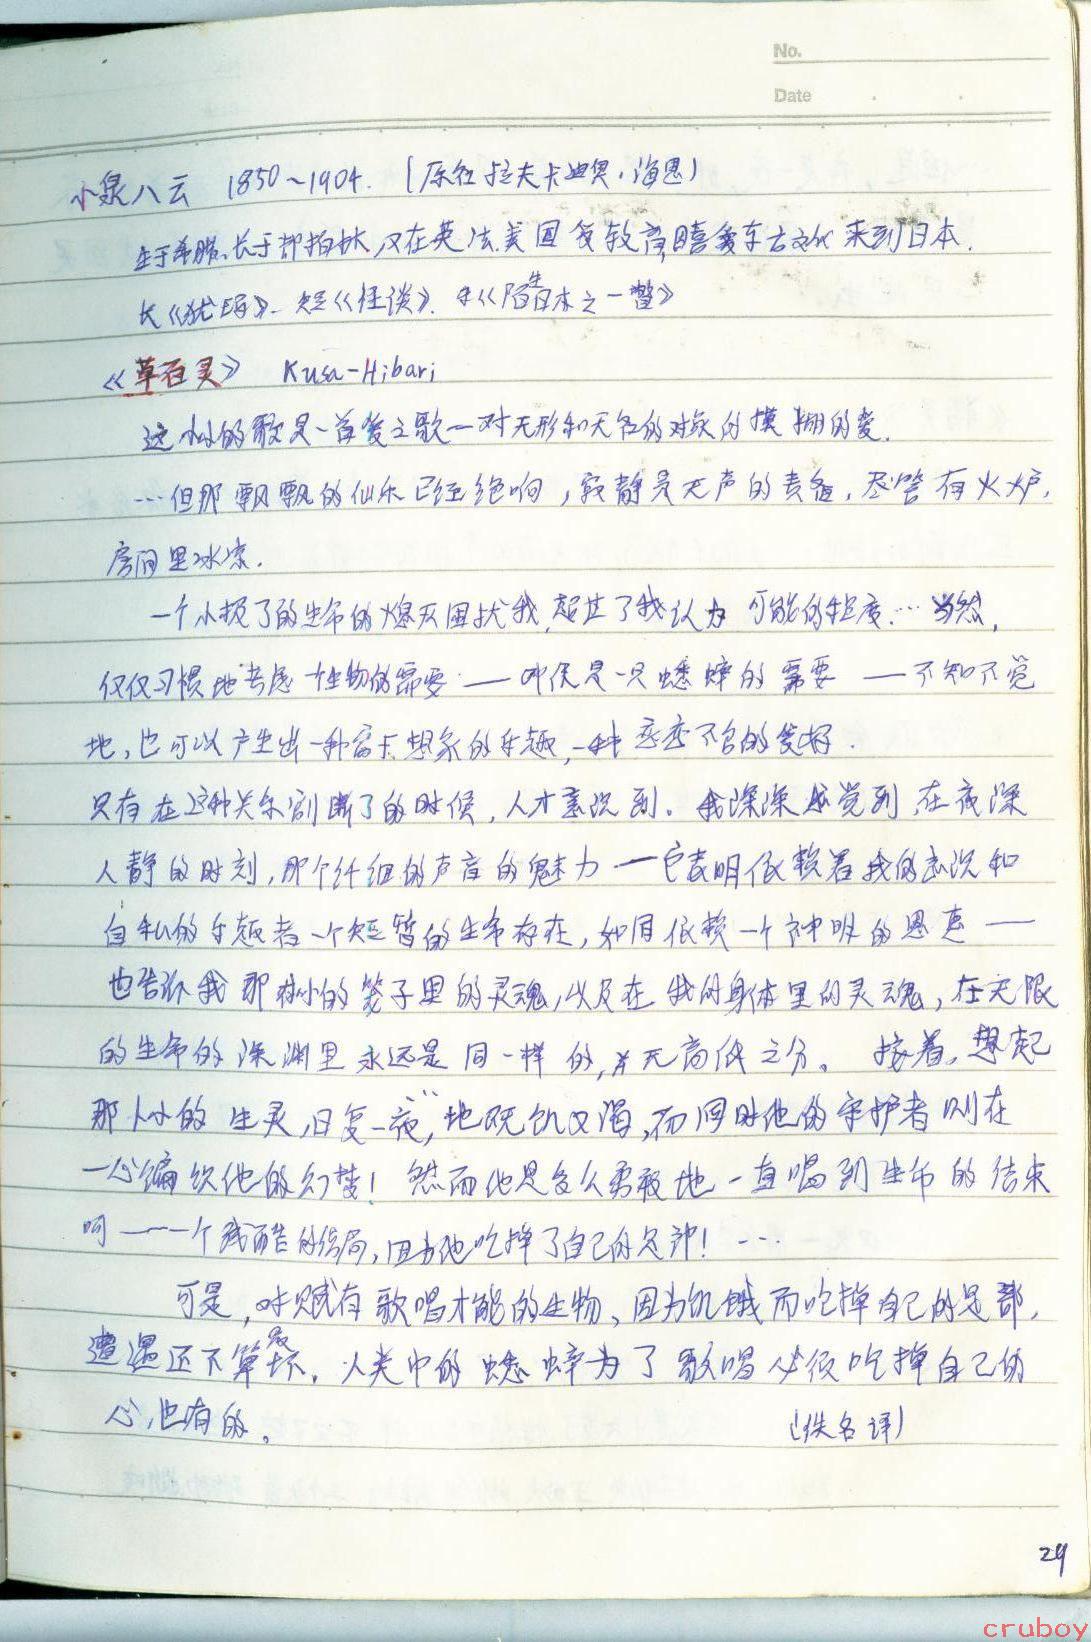 No.
Date
小泉八云 1850~1904. (原名拉夫卡迪奥·海恩)
生于希腊、长于都柏林,又在英法美国受教育,因喜爱东方文化来到日本.
长《犹玛》、短《怪谈》.《陌生日本之一瞥》
《草百灵》 Kusa-Hibari
这小小的歌是一首爱之歌—对无形和无名的对象的模糊的爱.
…但那飘飘的仙乐已经绝响,寂静是无声的责备,尽管有火炉,
房间里冰凉.
一个小极了的生命的熄灭困扰我,超过了我认为可能的程度…当然,
仅仅习惯地考虑一个生物的需要——哪怕是一只蟋蟀的需要——不知不觉
地,也可以产生出一种富于想象的乐趣,一种 的爱好.
只有在这种关系割断了的时候,人才意识到。我深深感觉到,在夜深
人静的时刻,那个纤细的声音的魅力——它表明依赖着我的意识和
自私的乐趣着一个短暂的生命存在,如同依赖一个神明的恩惠——
也告诉我那小小的笼子里的灵魂,以及在我的身体里的灵魂,在无限
的生命的深渊里永远是同一样的,并无高低之分。 接着,想起
那小小的生灵,日复一夜,…地既饥又渴,而同时他的守护者则在
一心编织他的幻梦! 然而他是多么勇敢地一直唱到生命的结束
呵——一个残酷的结局,因为他吃掉了自己的足部! …
可是,对赋有歌唱才能的生物、因为饥饿而吃掉自己的足部,
遭遇还不算最坏. 人类中的蟋蟀为了歌唱必须吃掉自己的
心,也有的。 (佚名译)
29
cruboy